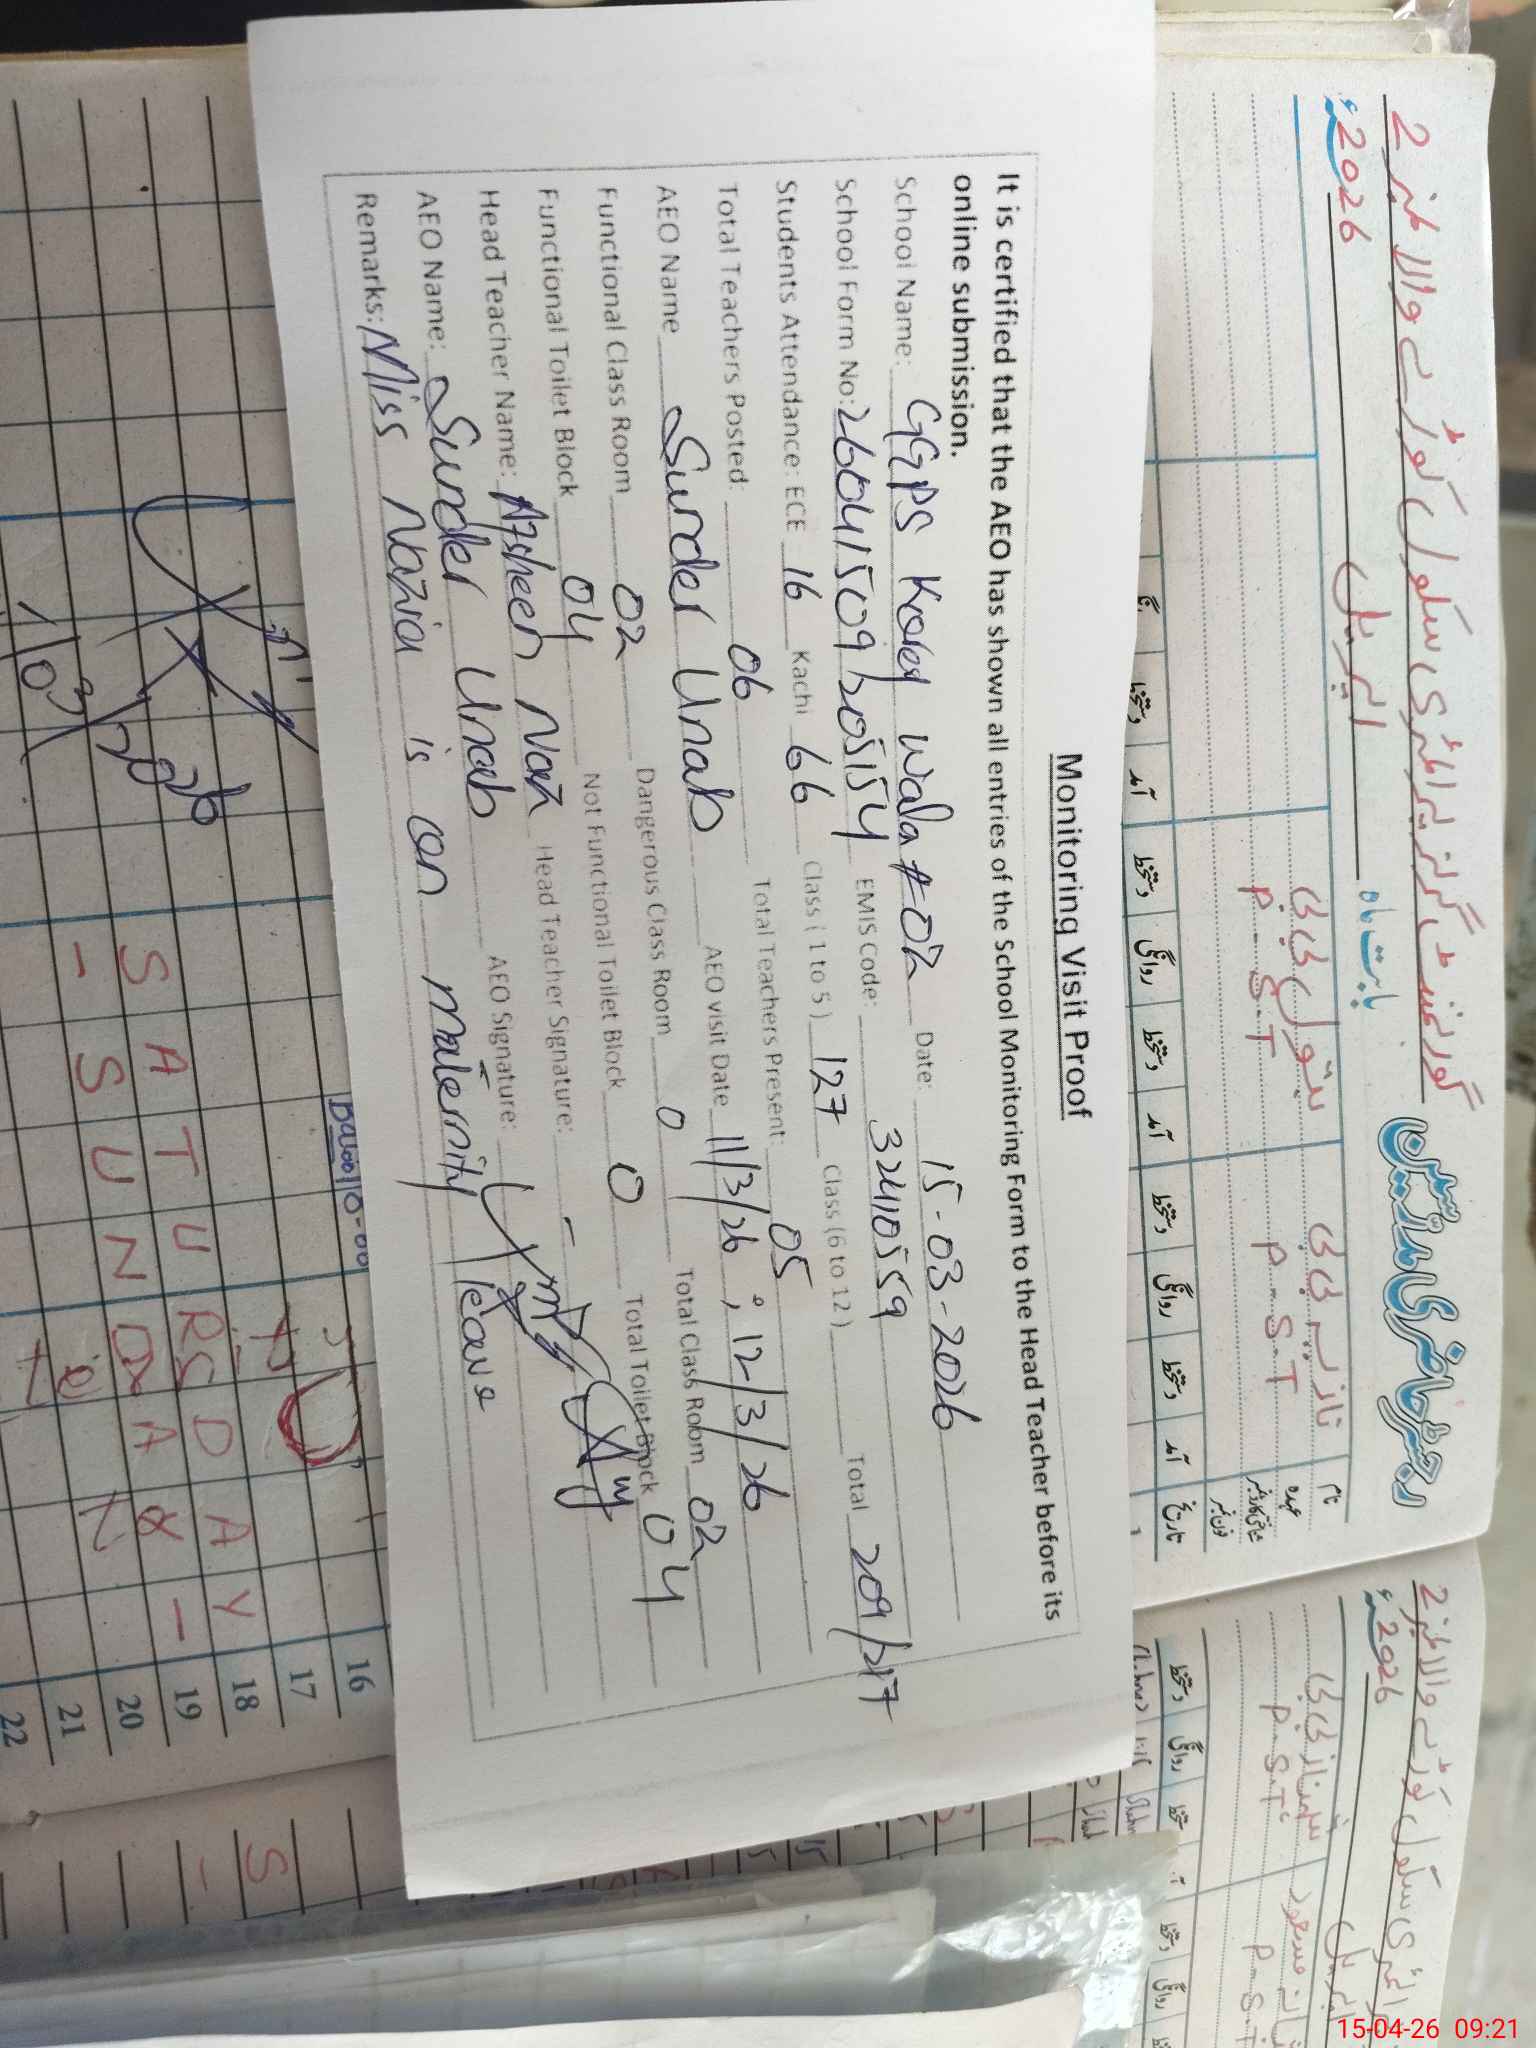 گورنمنٹ گرلز پرائمری سکول کوڑے والا نمبر 2
رجسٹر حاضری مدرسین
بابت ماہ اپریل 2026ء
نام
نازیہ بی بی
بتول بی بی
عہدہ
P-S-T
P-S-T
شناختی کارڈ نمبر
فون نمبر
تاریخ آمد دستخط روانگی دستخط آمد دستخط روانگی دستخط آمد دستخط
Monitoring Visit Proof
It is certified that the AEO has shown all entries of the School Monitoring Form to the Head Teacher before its
online submission.
School Name: GGPS Korey wala # 02 Date: 15-03-2026
School Form No: 26041509205154 EMIS Code: 32410559
Students Attendance: ECE 16 Kachi 66 Class ( 1 to 5 ) 127 Class (6 to 12 ) Total 209/217
Total Teachers Posted: 06 Total Teachers Present: 05
AEO Name Sunder Unab AEO visit Date 11/3/26 ; 12/3/26
Functional Class Room 02 Dangerous Class Room 0 Total Class Room 02
Functional Toilet Block 04 Not Functional Toilet Block 0 Total Toilet Block 04
Head Teacher Name: Afsheen Naz Head Teacher Signature:
AEO Name: Sunder Unab AEO Signature:
Remarks: Miss Nazia is on maternity leave
16
17
18 SATURDAY
19
20 SUNDAY
21
22
2026ء
شہناز بی بی
P-S-T
P-S-T
دستخط روانگی
15
15
15-04-26 09:21